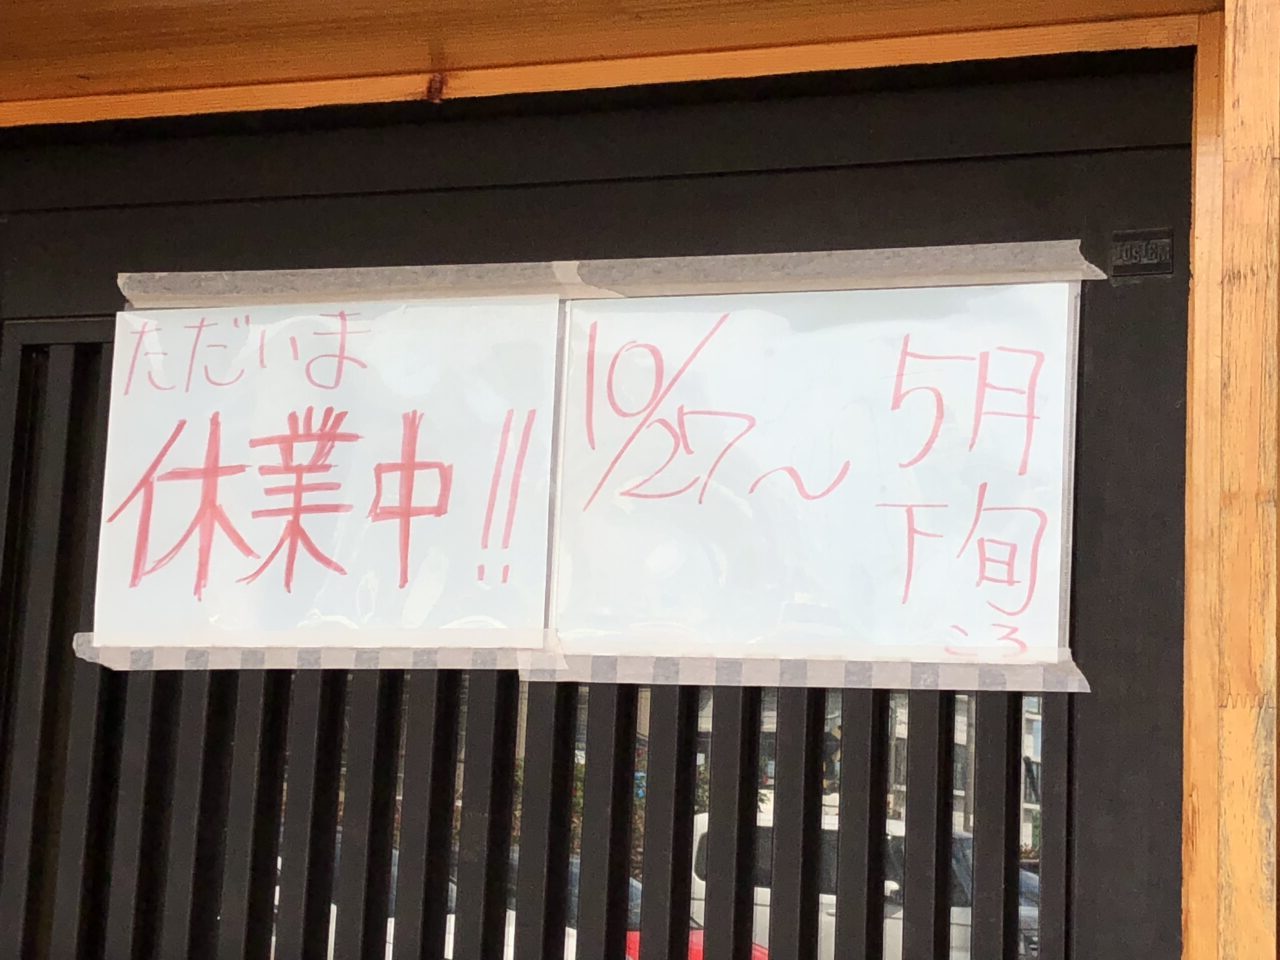 ただいま
休業中!!
10/27～
5月
下旬
ころ